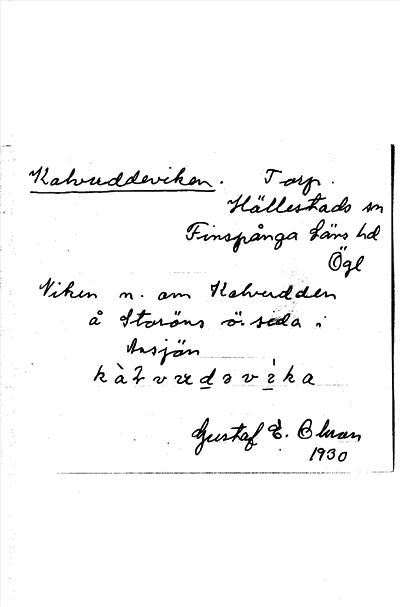 Kalvuddeviken. Torp.
Hällestads sn
Finspånga läns hd
Ögl
Viken n. om Kalvudden
å Storöns ö. sida i
Ansjön
Gustaf E. Olson
1930